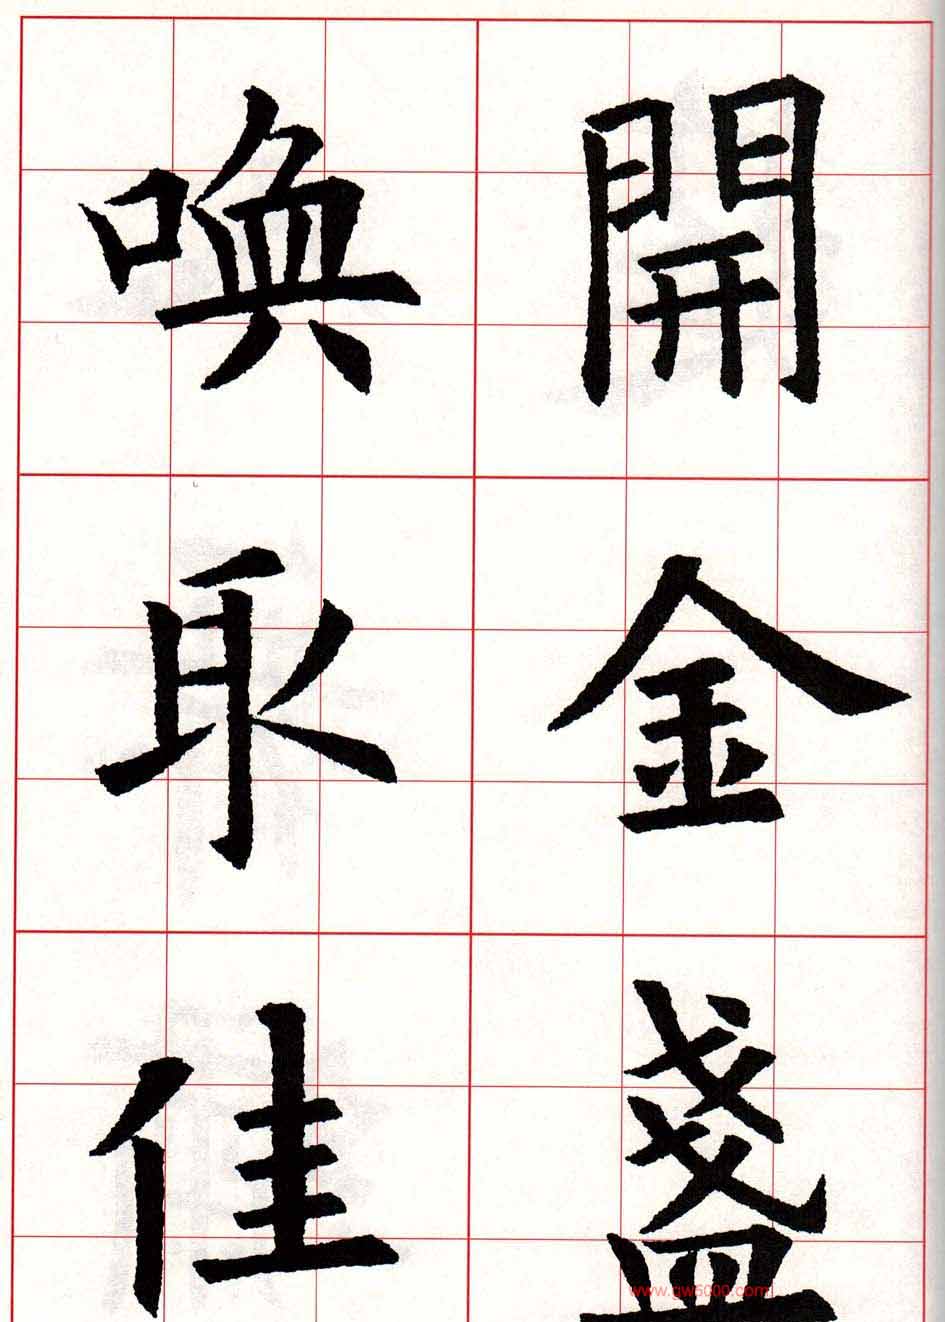 開金盞
喚取佳
www.gw5000.com